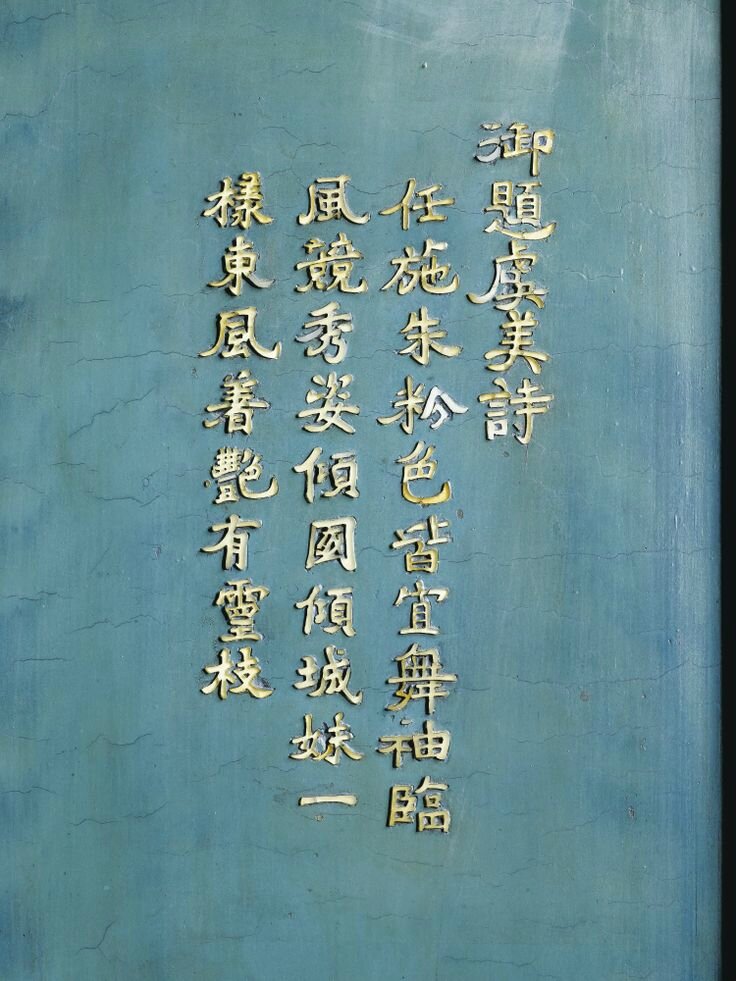 御題虞美詩
任施朱粉色皆宜舞袖臨
風競秀姿傾國傾城妹一
樣東風著艷有靈枝